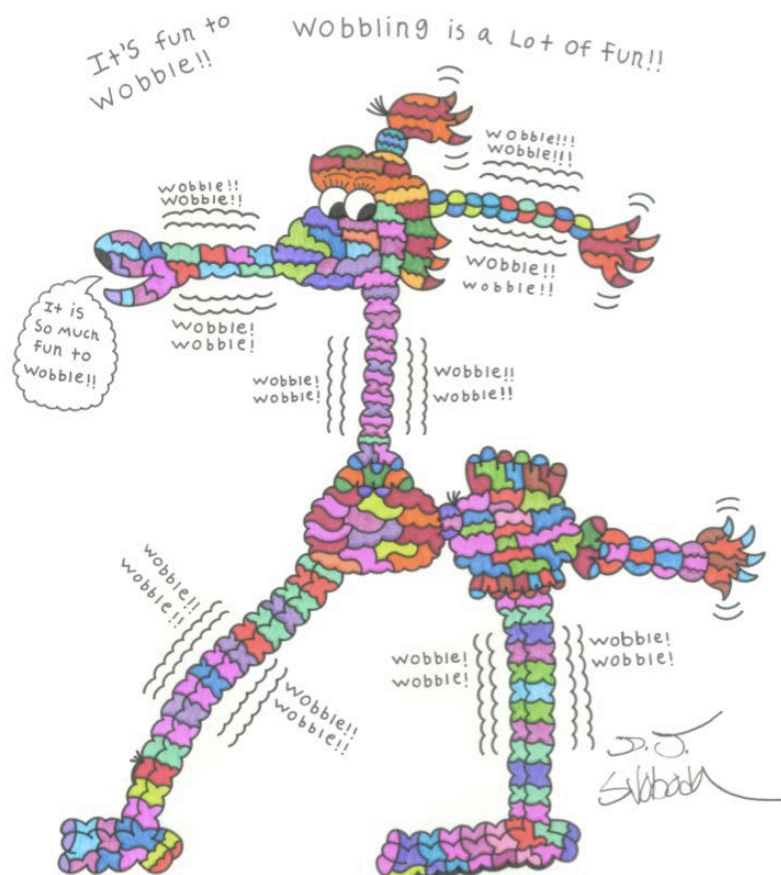 It's fun to
wobble!!
Wobbling is a Lot of fun!!
wobble!!!
wobble!!!
wobble!!
wobble!!
wobble!!
wobble!!
wobble!
wobble!
It is
So much
fun to
wobble!!
wobble!
wobble!
wobble!!
wobble!!
wobble!!
wobble!!
wobble!!
wobble!!
wobble!
wobble!
wobble!
wobble!
D.J.
Svoboda